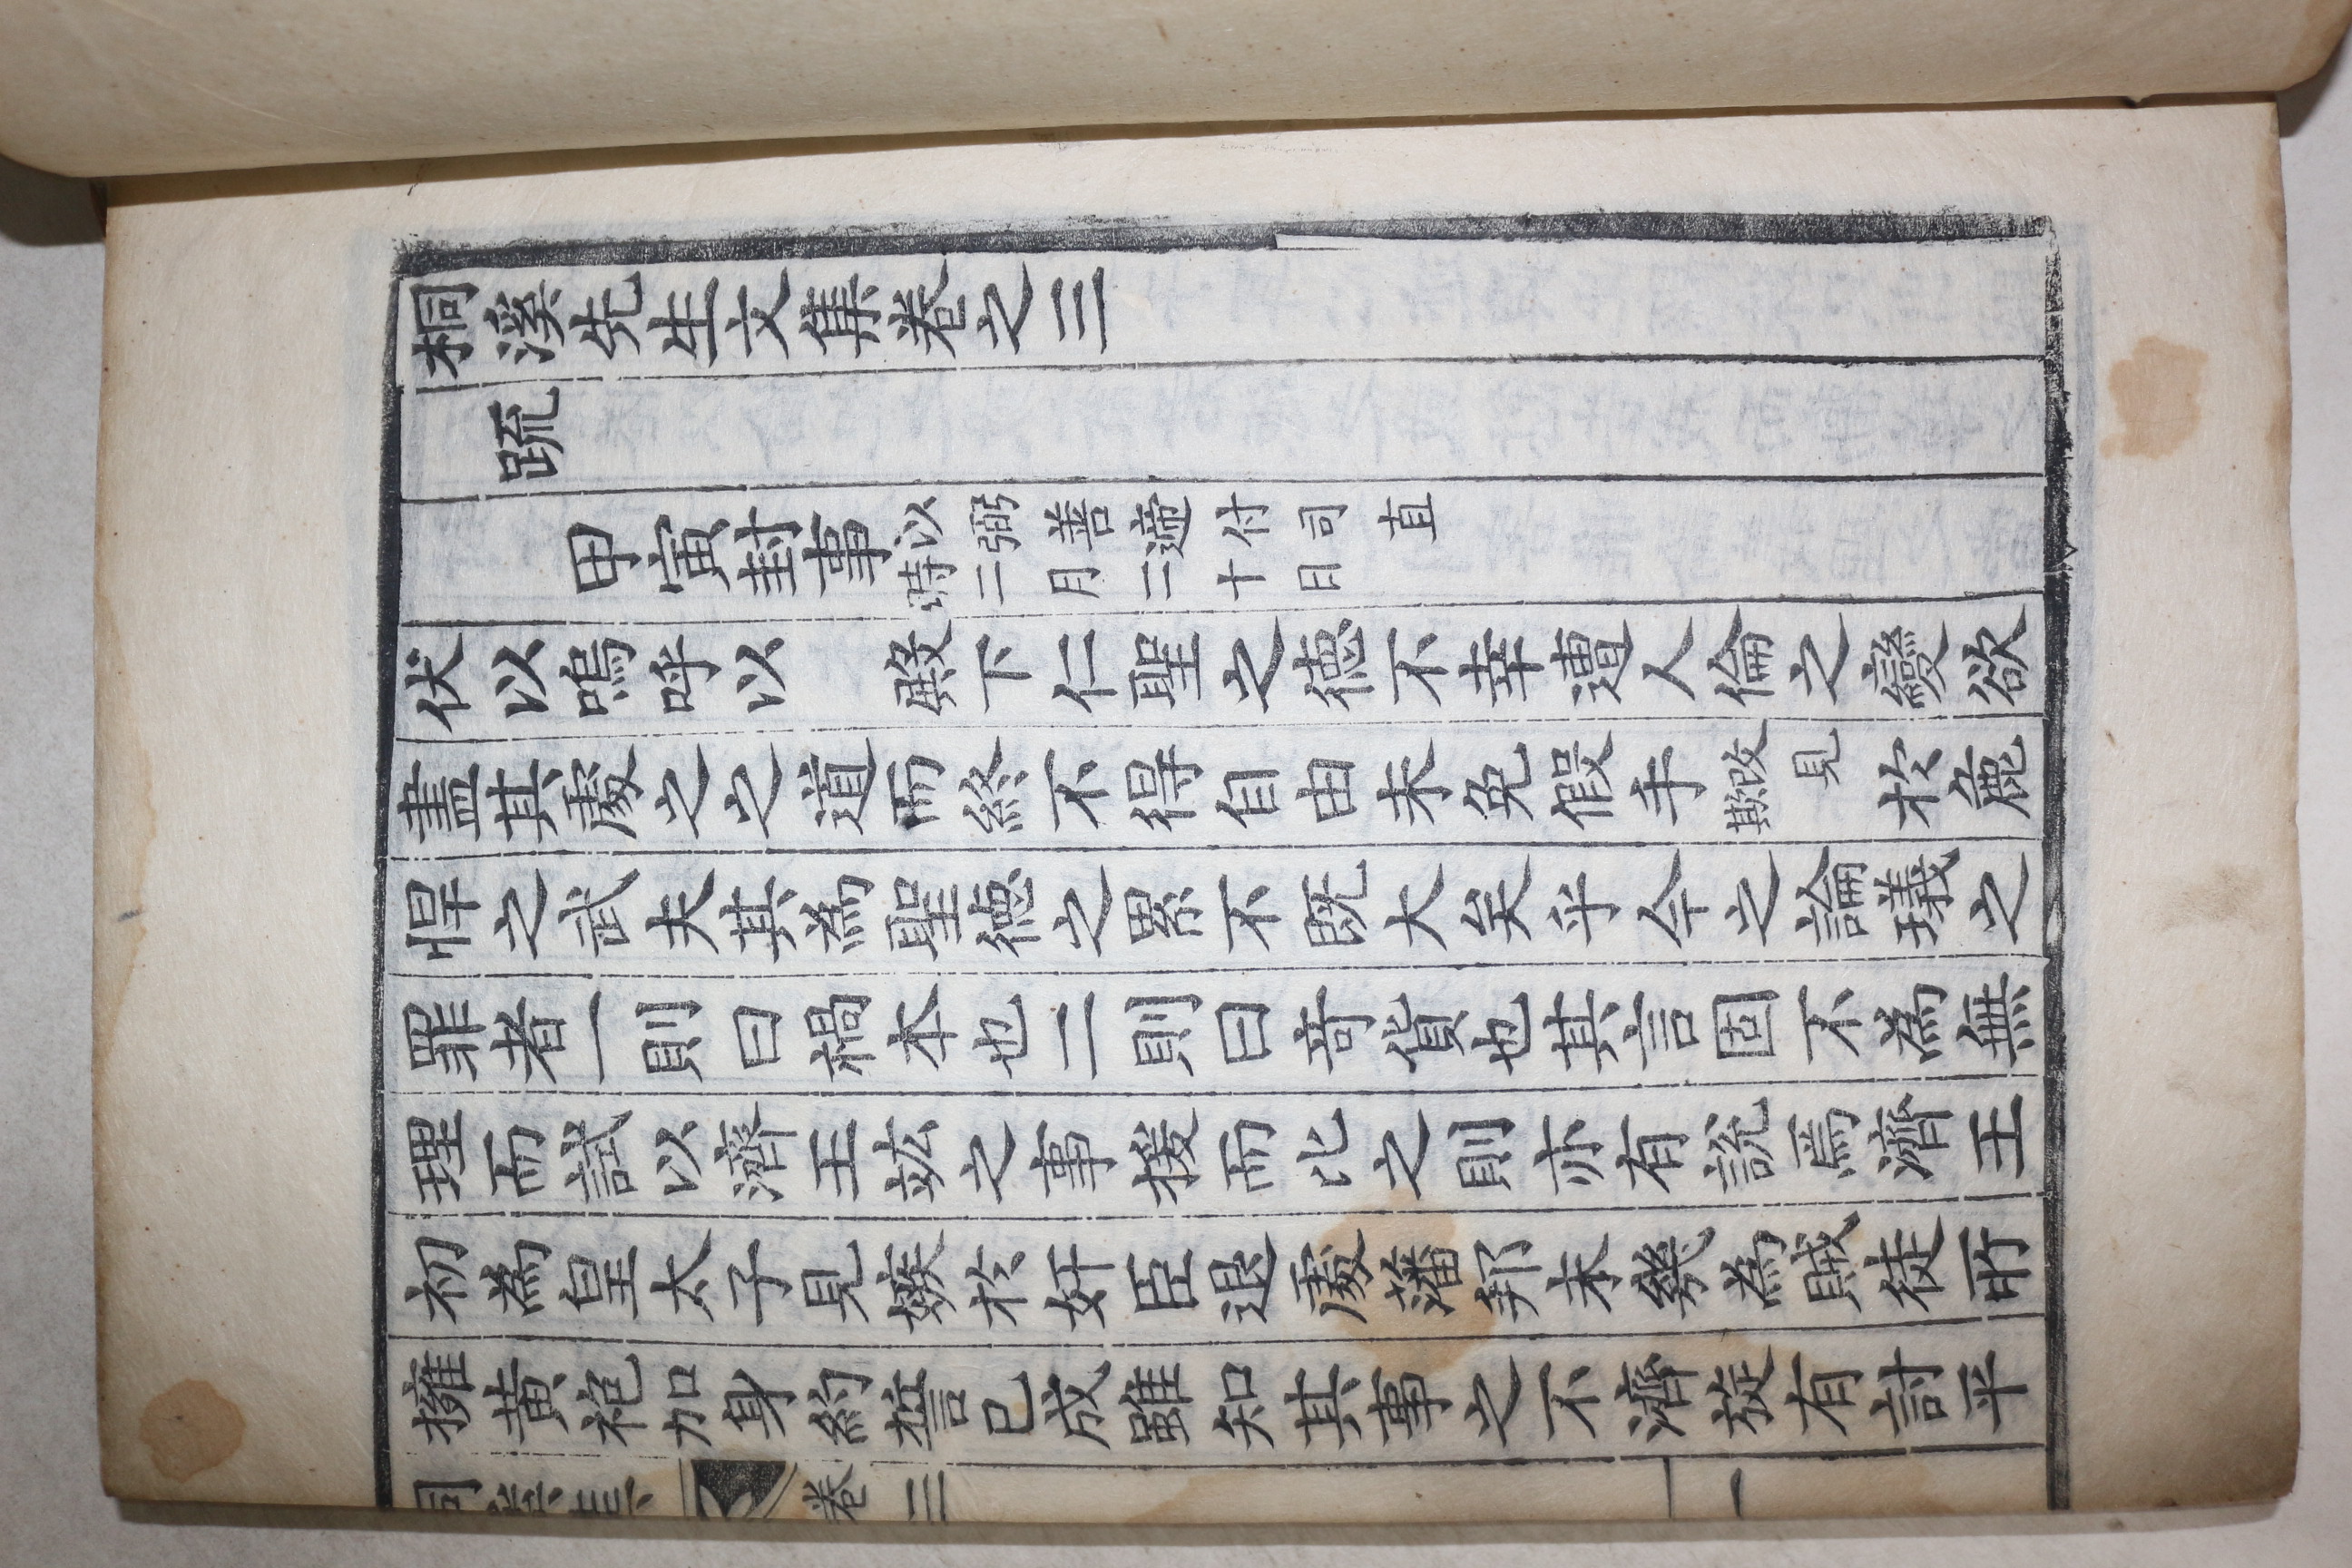 桐溪先生文集卷之三
疏
甲寅封事以弼善遞付司直時二月二十日
伏以嗚呼以 殿下仁聖之德不幸遭人倫之變欲
盡其處之之道而終不得自由未免假手改見欺於麁
悍之武夫其爲聖德之累不旣大矣乎今之論㼁之
罪者一則曰禍本也二則曰奇貨也其言固不爲無
理而試以濟王竑之事援而比之則亦有說焉濟王
初爲皇太子見廢於奸臣退處藩邦未幾爲賊徒所
擁黃袍加身約誓已成雖知其事之不濟旋有討平
桐溪集 卷三 一